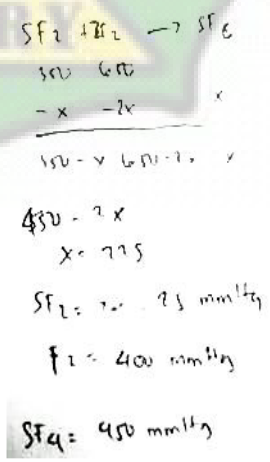 RY
SF2 + 2F2 → SF6
350 650
- x -2x x
350 - x 650 - 2x x
450 = 2x
x = 225
SF2 = 25 mmHg
F2 = 400 mmHg
SF4 = 450 mmHg